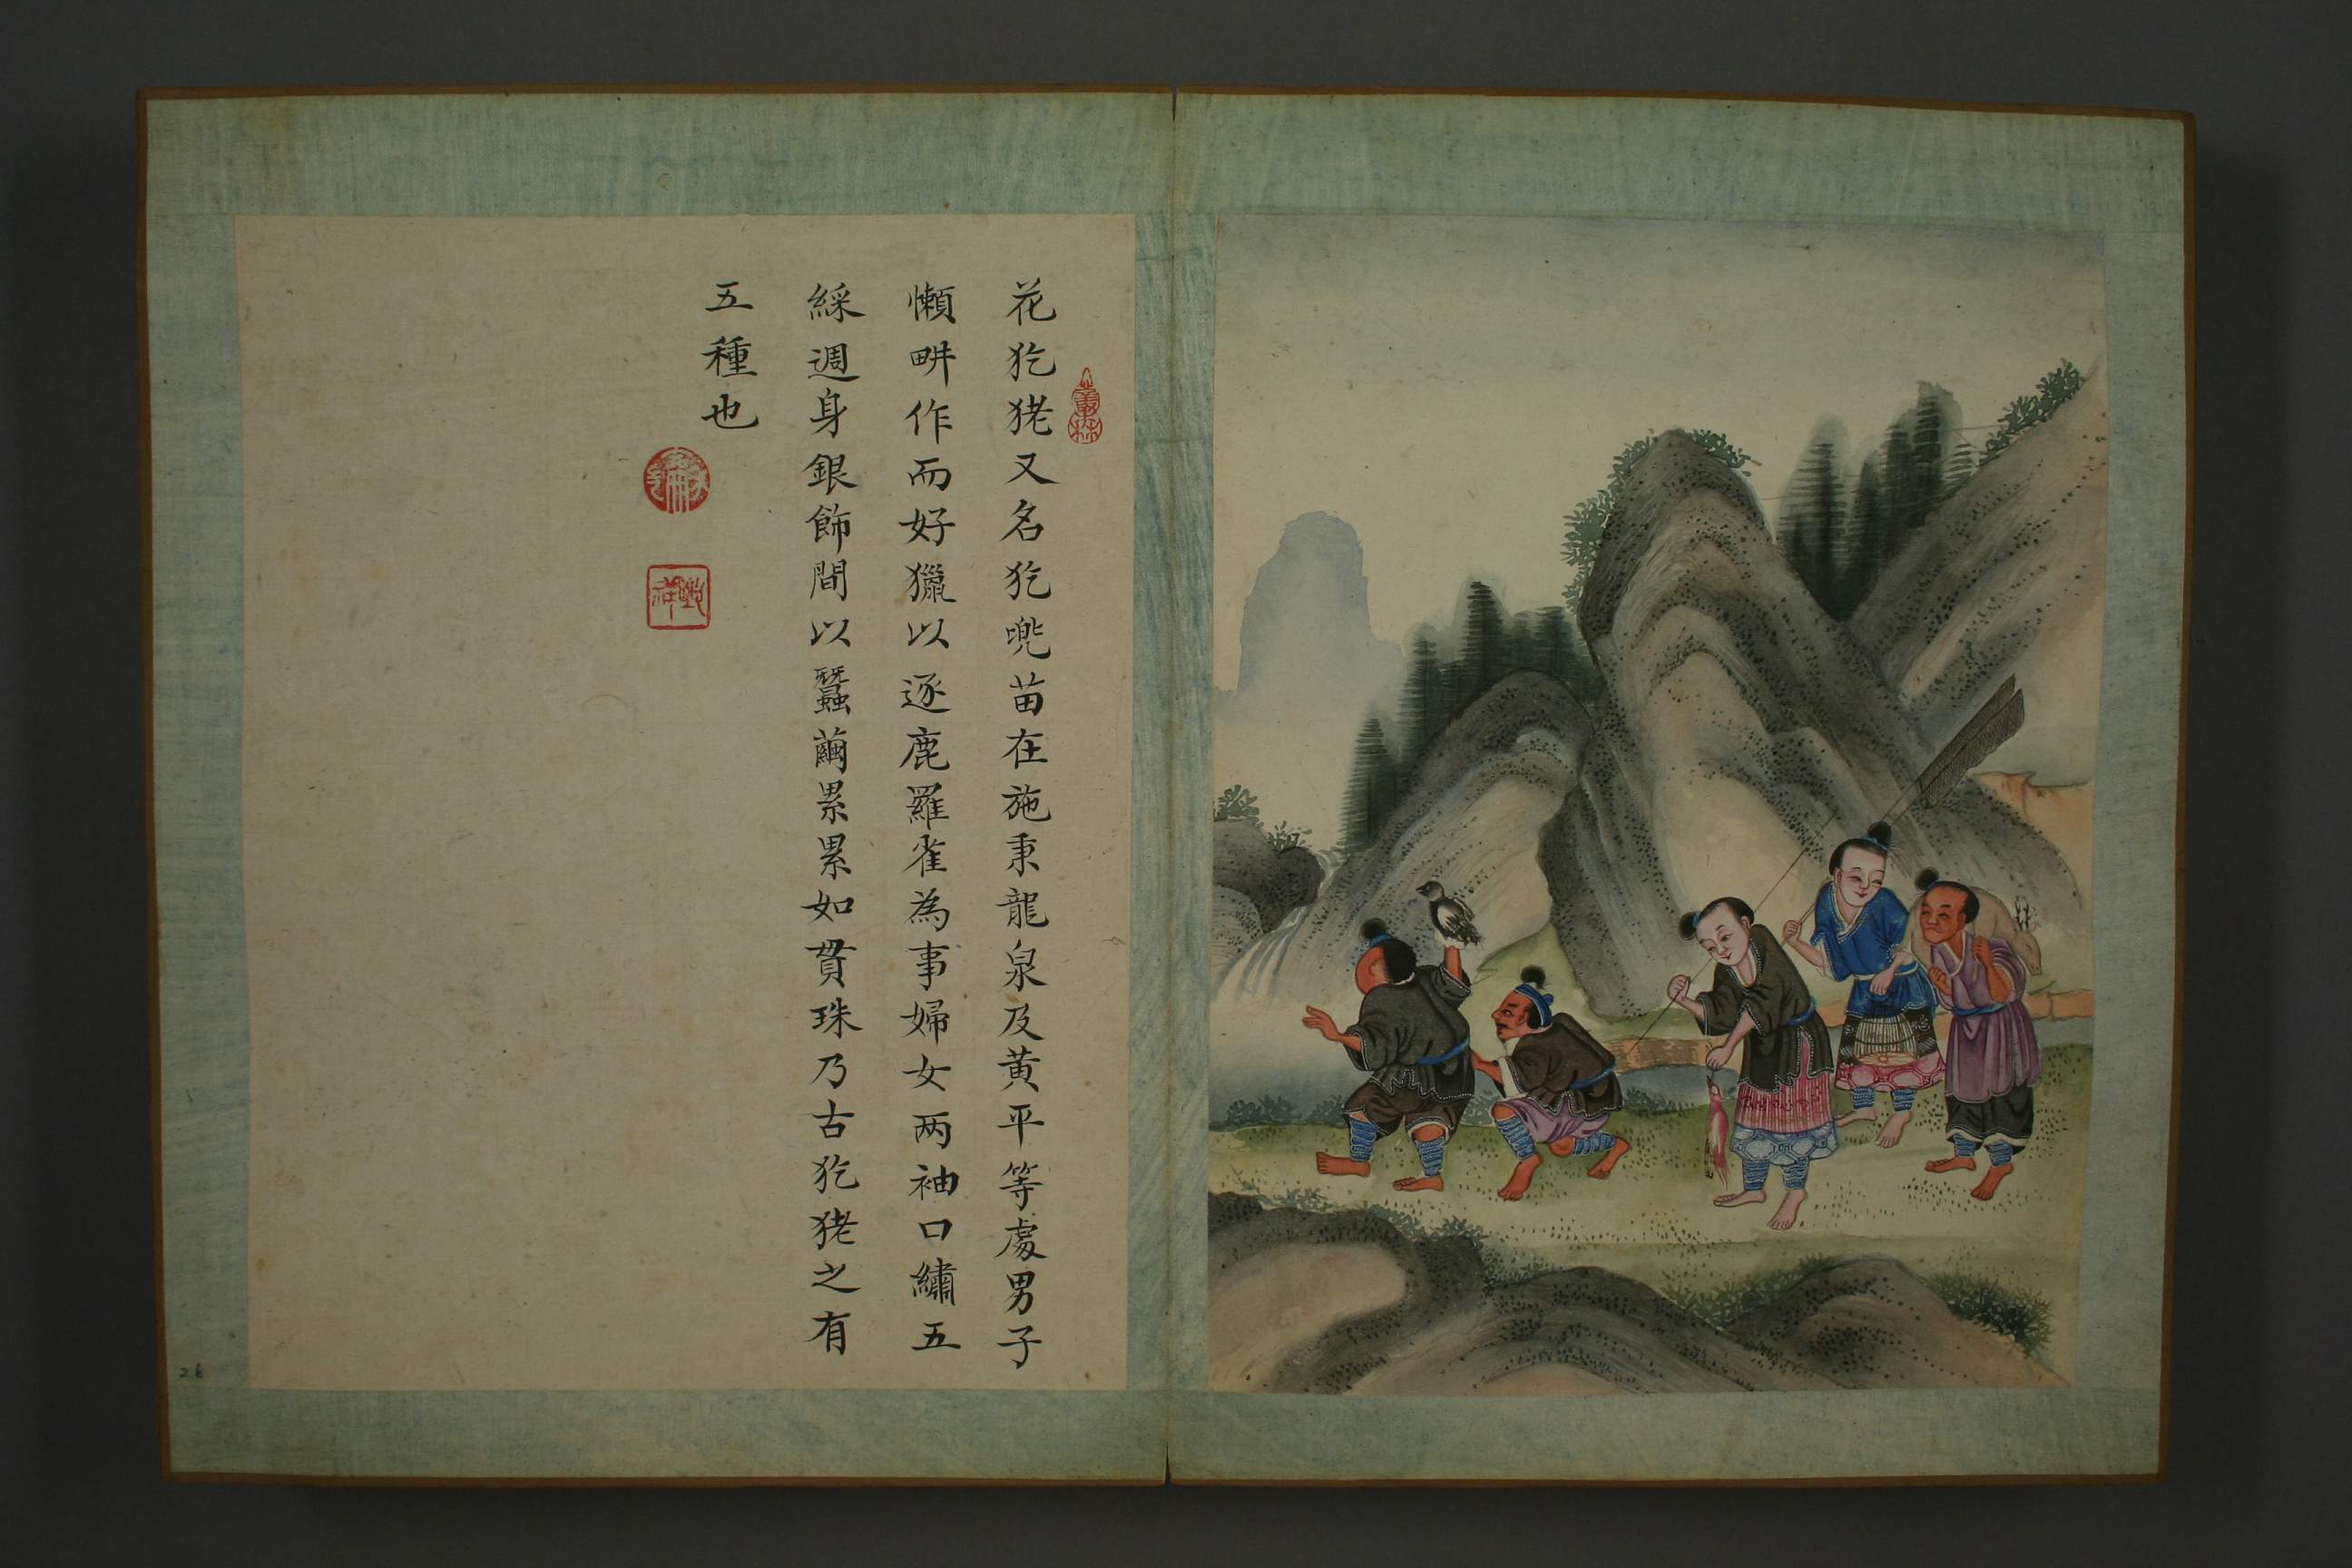 花犵狫又名犵兠苗在施秉龍泉及黄平等處男子
懶畊作而好獵以逐鹿羅雀為事婦女两袖口繡五
綵週身銀飾間以蠶繭累累如貫珠乃古犵狫之有
五種也
26